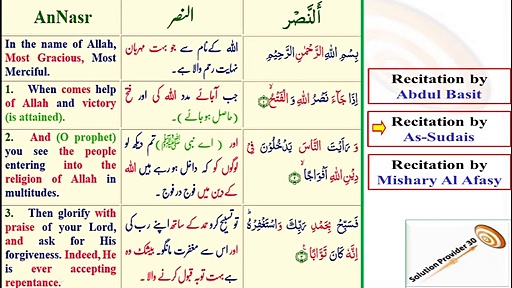 AnNasr
النصر
اَلنَّصْر
In the name of Allah,
Most Gracious, Most
Merciful.
اللہ کے نام سے جو بہت مہربان
نہایت رحم والا ہے۔
بِسْمِ اللهِ الرَّحْمٰنِ الرَّحِيْمِ
1. When comes help
of Allah and victory
(is attained).
جب آجائے مدد اللہ کی اور فتح
(حاصل ہو جائے)۔
اِذَا جَآءَ نَصْرُ اللهِ وَ الْفَتْحُ ۙ﴿۱﴾
2. And (O prophet)
you see the people
entering into the
religion of Allah in
multitudes.
اور (اے نبی ﷺ) تم دیکھ لو
لوگوں کو کہ داخل ہو رہے ہیں اللہ
کے دین میں فوج در فوج۔
وَ رَاَيْتَ النَّاسَ يَدْخُلُوْنَ فِيْ
دِيْنِ اللهِ اَفْوَاجًا ۙ﴿۲﴾
3. Then glorify with
praise of your Lord,
and ask for His
forgiveness. Indeed, He
is ever accepting
repentance.
تو تسبیح کرو حمد کے ساتھ اپنے رب کی
اور اس سے مغفرت مانگو۔ بیشک وہ
ہے بہت توبہ قبول کرنے والا۔
فَسَبِّحْ بِحَمْدِ رَبِّكَ وَاسْتَغْفِرْهُ ؕ
اِنَّهٗ كَانَ تَوَّابًا ﴿۳﴾
Recitation by
Abdul Basit
Recitation by
As-Sudais
Recitation by
Mishary Al Afasy
Solution Provider 30